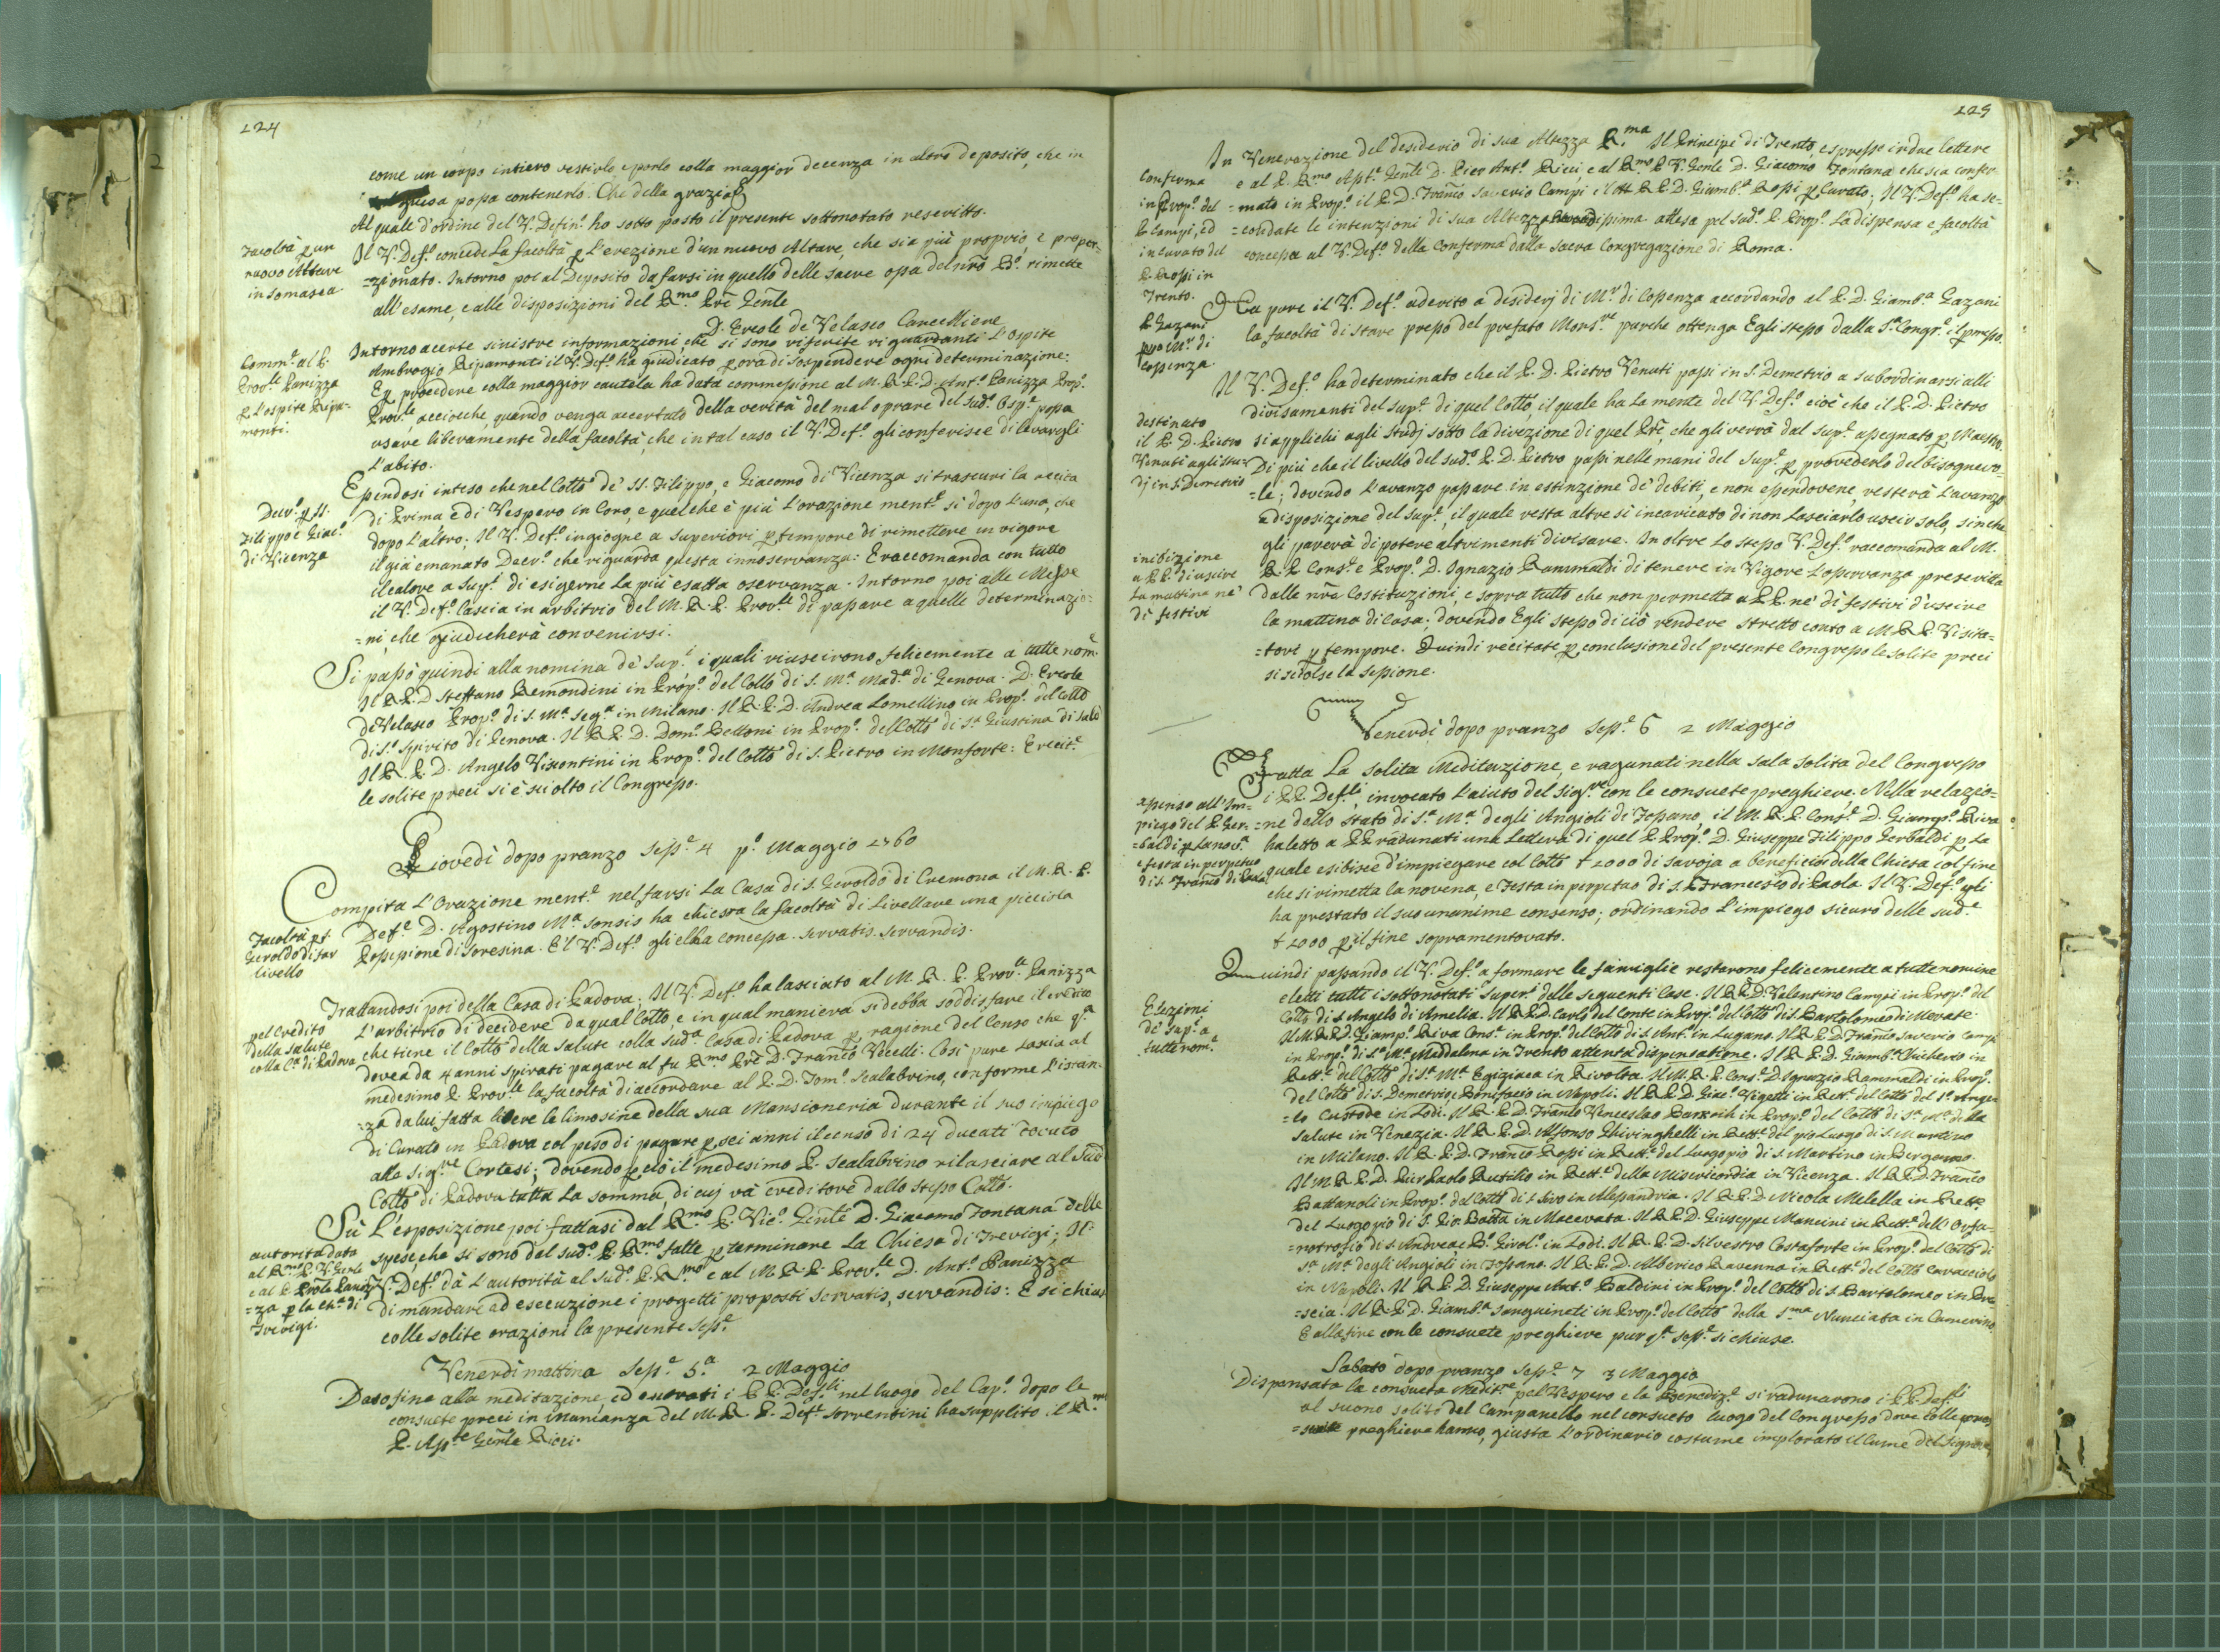 124
come un corpo intiero vestirlo, e porlo colla maggior decenza in altro deposito, che in
guisa possa contenerlo. Che della grazia &
Al quale d'ordine del V. Defin.º ho sotto posto il presente sottonotato rescritto.
Facoltà p un
nuovo Altare
in Somasca
Il V. Def.º concede la facoltà p l'erezione d'un nuovo Altare, che sia più proprio, e propor-
=zionato. Intorno poi al Deposito da farsi in quello delle sacre ossa del nrõ B.º rimette
all'esame, e alle disposizioni del R.mo Prẽ Genle
D. Ercole de Velasco Cancelliere
Comm.e al P.
Prov.le Panizza
p l'ospite Ripa-
monti.
Intorno a certe sinistre informazioni, che si sono riferite riguardanti l'Ospite
Ambrogio Ripamonti il V. Def.º ha giudicato p ora di sospendere ogni determinazione:
E p procedere colla maggior cautela ha data commessione al M. R. P. D. Ant.º Panizza Prop.º
Prov.le, acciocche, quando venga accertato della verità del mal oprare del sud.º Osp.e possa
usare liberamente della facoltà, che in tal caso il V. Def.º gli conferisce di levargli
l'abito.
Decr.º p SS.
Filippo e Giac.º
di Vicenza
Essendosi inteso che nel Collº de' SS. Filippo, e Giacomo di Vicenza si trascuri la recita
di Prima e di Vespero in Coro, e quel che è più l'orazione ment.e sì dopo l'una, che
dopo l'altro; Il V. Def.º ingiogne a superiori p tempore di rimettere in vigore
il già emanato Decr.º che riguarda questa innosservanza: E raccomanda con tutto
il calore a Sup.i di esigerne la più esatta oservanza. Intorno poi alle Messe
il V. Def.º lascia in arbitrio del M. R. P. Prov.le di passare a quelle determinazio-
=ni, che giudicherà convenirsi.
Si passò quindi alla nomina de' Sup.i i quali riuscirono felicemente a tutte nom.
Il R. P. D. Steffano Remondini in Prop.º del Collº di S. M.a Mad.a di Genova. D. Ercole
de Velasco Prop.º di S. M.a Seg.a in Milano. Il R. P. D. Andrea Lomellino in Prop.º del Collº
di S.º Spirito di Genova. Il R. P. D. Dom.º Bettoni in Prop.º del Collº di S.a Giustina di Salò
Il R. P. D. Angelo Viscontini in Prop.º del Collº di S. Pietro in Monforte: E recit.e
le solite preci si è sciolto il Congresso.
Giovedì dopo pranzo Sess.e 4 p.º Maggio 1760
Compita l'Orazione ment.e nel farsi la Casa di S. Geroldo di Cremona il M. R. P.
Facoltà p S.
Geroldo di far
livello
Def.e D. Agostino M.a Sonsis ha chiesta la facoltà di Livellare una picciola
Possessione di Soresina. E 'l V. Def.º gliel'ha concessa. servatis servandis.
pel credito
della Salute
colla C.a di Padova
Trattandosi poi della Casa di Padova; Il V. Def.º ha lasciato al M. R. P. Prov.le Panizza
l'arbitrio di decidere da qual Collº, e in qual maniera si debba soddisfare il credito
che tiene il Collº della Salute colla sud.a Casa di Padova p ragione del Censo che q.a
dovea da 4 anni spirati pagare al fu R.mo Prẽ D. Franc.º Vecelli. Così pure lascia al
medesimo P. Prov.le la facoltà d'accordare al P. D. Tom.º Scalabrino, conforme l'istan-
=za da lui fatta libere le limosine della sua Mansioneria durante il suo impiego
di Curato in Padova col peso di pagare p sei anni il censo di 24 ducati Cocuto
alla Sig.re Cortesi; dovendo p ciò il medesimo P. Scalabrino rilasciare al Sud.º
Collº di Padova tutta la somma, di cui và creditore dallo stesso Collº.
autorità data
al R.mo P. V. Genle
e al P. Prõle Paniz-
=za p la ch.a di
Trevigi.
Sù L'esposizione poi fattasi dal R.mo P. Vic.º Genle D. Giacomo Fontana delle
spese, che si sono dal sud.º P. R.mo fatte p terminare la Chiesa di Trevigi; Il
V. Def.º dà l'autorità al sud.º P. R.mo e al M. R. P. Prov.le D. Ant.º Panizza
di mandare ad esecuzione i progetti proposti servatis, servandis: E si chiuse
colle solite orazioni la presente sess.e
Venerdì mattina Sess.e 5.a 2 Maggio
Dato fine alla meditazione, ed entrati i PP. Def.li nel luogo del Cap.º dopo le
consuete preci in mananza del M. R. P. Def.e Sorrentini ha supplito il R.mo
P. Ass.te Genle Ricci.
125
Conferma
in Prop.º del
P. Campi, ed
in Curato del
P. Rossi in
Trento.
In Venerazione del desiderio di sua Altezza R.ma Il Principe di Trento, espresse in due lettere
e al P. R.mo Ass.te Genle D. Pier Ant.º Ricci, e al R.mo P. V. Genle D. Giacomo Fontana che sia confer-
=mato in Prop.º il P. D. Franc.º Saverio Campi e 'l M. R. P. D. Giamb.a Rossi p Curato; Il V. Def.º ha se-
=condate le intenzioni di sua Altezza Revedissima attesa pel sud.º P. Prop.º La dispensa e facoltà
concessa al V. Def.º della Conferma dalla Sacra Congregazione di Roma.
P. Gazani
presso M.r di
Cosenza
Ha pure il V. Def.º aderito a desiderj di M.r di Cosenza accordando al P. D. Giamb.a Gazani
la facoltà di stare presso del prefato Mons.re purche ottenga Egli stesso dalla S.a Congr.e il permesso.
destinato
il P. D. Pietro
Venuti agli stu-
dj in S. Demetrio
Il V. Def.º ha determinato che il P. D. Pietro Venuti passi in S. Demetrio a subordinarsi alli
divisamenti del Sup.e di quel Collº, il quale ha la mente del V. Def.º cioè che il P. D. Pietro
si applichi agli studj sotto la direzione di quel Prẽ, che gli verrà dal Sup.e assegnato p Maestro.
Di più che il livello del sud.º P. D. Pietro passi nelle mani del Sup.e p provederlo del bisognevo-
=le; dovendo l'avanzo passare in estinzione de' debiti, e non essendovene, resterà l'avanzo
a disposizione del Sup.e, il quale resta altre sì incaricato di non lasciarlo uscir solo, sin che
gli parerà di potere altrimenti divisare. In oltre lo stesso V. Def.º raccomanda al M.
inibizione
a PP. d'uscire
la mattina ne'
dì festivi
R. P. Cons.e e Prop.º D. Ignazio Rammaldi di tenere in Vigore l'osservanza prescritta
dalle nrẽ Costituzioni, e sopra tutto che non permetta a PP. ne' dì festivi d'uscire
la mattina di Casa; dovendo Egli stesso di ciò rendere stretto conto a M. R. P. Visita-
=tori p tempore. Quindi recitate p conclusione del presente Congresso le solite preci
si sciolse la sessione.
Venerdì dopo pranzo Sess.e 6 2 Maggio
Fatta la solita Meditazione, e ragunati nella sala solita del Congresso
i PP. Def.li, invocato l'aiuto del Sig.re con le consuete preghiere. Nella relazio-
assenso all'Im-
piego del P. Ger-
=baldi p la nov.a
e festa in perpetuo
di S. Franc.º di Paola
=ne dello stato di S.a M.a degli Angioli di Fossano, il M. R. P. Cons.e D. Giamp.º Riva
ha letto a PP. radunati una Lettera di quel P. Prop.º D. Giuseppe Filippo Gerbaldi p la
quale esibisce d'impiegare col Collº ₤ 1000 di Savoja a beneficio della Chiesa col fine
che si rimetta la novena, e Festa in perpetuo di S. Francesco di Paola. Il V. Def.º gli
ha prestato il suo unanime consenso; ordinando l'impiego sicuro delle sud.e
₤ 1000 p il fine sopramentovato.
Elezioni
de' Sup.i a
tutte nom.e
Quindi passando il V. Def.º a formare le famiglie restarono felicemente a tutte nomine
eletti tutti i sottonotati Super.i delle seguenti Case. Il R. P. D. Valentino Campi in Prop.º del
Collº di S. Angelo di Amelia. Il R. P. D. Carlo del Conte in Prop.º del Collº di S. Bartolomeo di Merate.
Il M. R. P. D. Giamp.º Riva Cons.e in Prop.º del Collº di S. Ant.º in Lugano. Il R. P. D. Franc.º Saverio Campi
in Prop.º di S.a M.a Maddalena in Trento attenta dispensatione. Il R. P. D. Giamb.a Chicherio in
Rett.e del Collº di S.a M.a Egiziaca in Rivolta. Il M. R. P. Cons.e D. Ignazio Rammaldi in Prop.º
del Collº di S. Demetrio, e Bonifacio in Napoli. Il R. P. D. Giac.º Vigetti in Rett.e del Collº del S.º Ange-
=lo Custode in Lodi. Il R. P. D. Franc.º Venceslao Barcoich in Prop.º del Collº di S.a M.a della
Salute in Venezia. Il R. P. D. Alfonso Ghiringhelli in Rett.e del pio Luogo di S. Martino
in Milano. Il R. P. D. Franc.º Rossi in Rett.e del Luogo pio di S. Martino in Bergamo.
Il M. R. P. D. Pier Paolo Rutilio in Rett.e della Misericordia in Vicenza. Il R. P. D. Franc.º
Battanoli in Prop.º del Collº di S. Siro in Alessandria. Il R. P. D. Nicola Milella in Rett.e
del Luogo pio di S. Gio: Batta in Macerata. Il R. P. D. Giuseppe Mancini in Rett.e dell'Orfa-
=notrofio di S. Andrea e B.º Girol.º in Lodi. Il R. P. D. Silvestro Costaforte in Prop.º del Collº di
S.a M.a degli Angioli in Fossano. Il R. P. D. Alberico Ravenna in Rett.e del Collº Caracciolo
in Napoli. Il R. P. D. Giuseppe Ant.º Baldini in Prop.º del Collº di S. Bartolomeo in Bre-
=scia. Il R. P. D. Giamb.a Sanguineti in Prop.º del Collº della S.ma Nunciata in Camerino
E alla fine con le consuete preghiere pur q.a sess.e si chiuse.
Sabato dopo pranzo Sess.e 7 3 Maggio
Dispensata la consueta Medit.ne pel Vespero e la Benediz.e si radunarono i PP. Def.li
al suono solito del Campanello nel consueto luogo del Congresso dove colle
preghiere hanno, giusta l'ordinario costume implorato il lume del Signore,